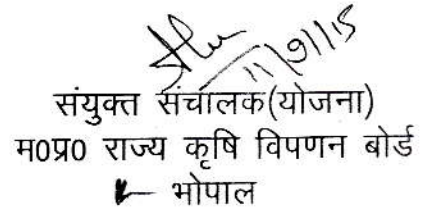 11/9/15
संयुक्त संचालक(योजना)
म0प्र0 राज्य कृषि विपणन बोर्ड
भोपाल